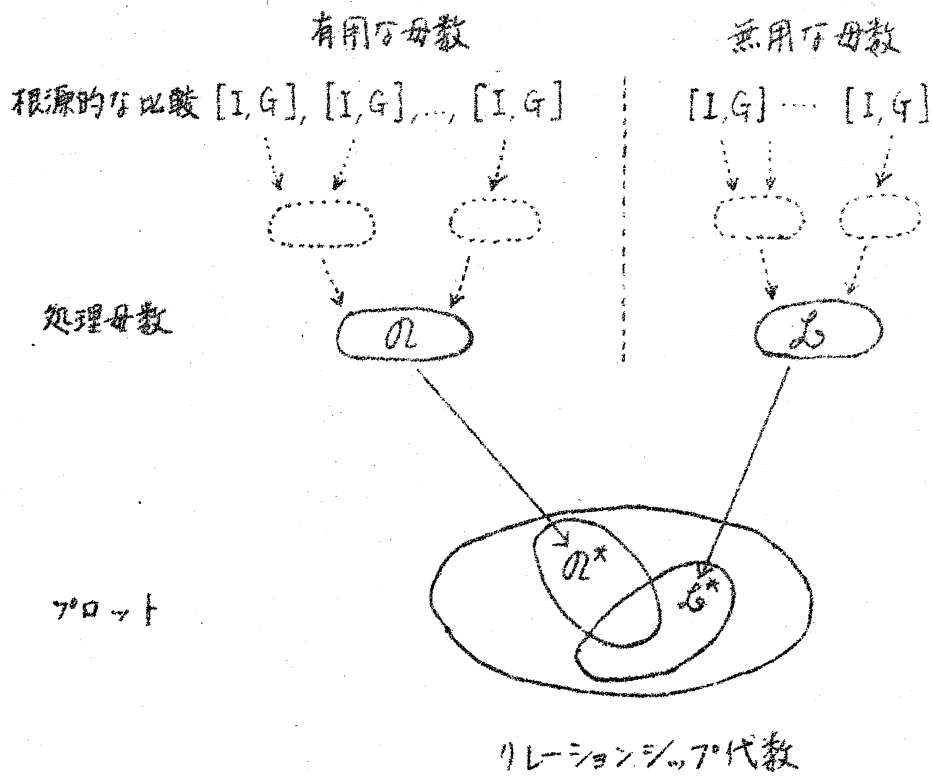 有用な母数 無用な母数
根源的な比較 [I,G], [I,G],…, [I,G] [I,G] ‥‥ [I,G]
処理母数 𝒩 ℒ
プロット 𝒩* ℒ*
リレーションシップ代数